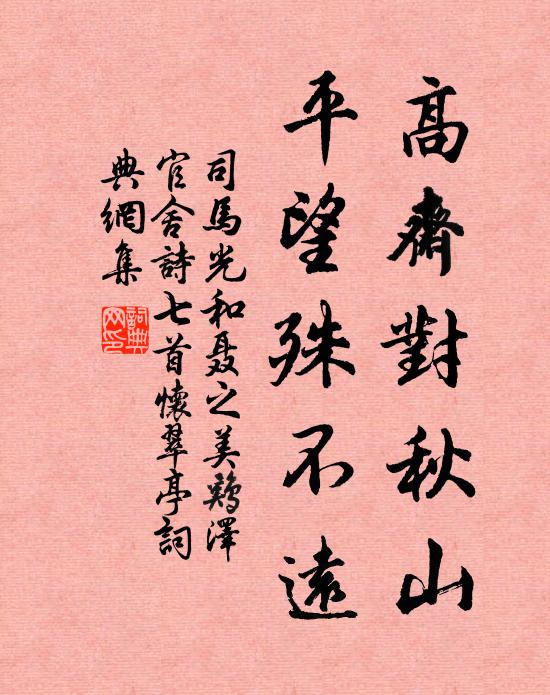 高齋對秋山
平望殊不遠
司馬光和聶之美鷄澤
官舍詩七首懷翠亭詞
典網集
詞典
网印